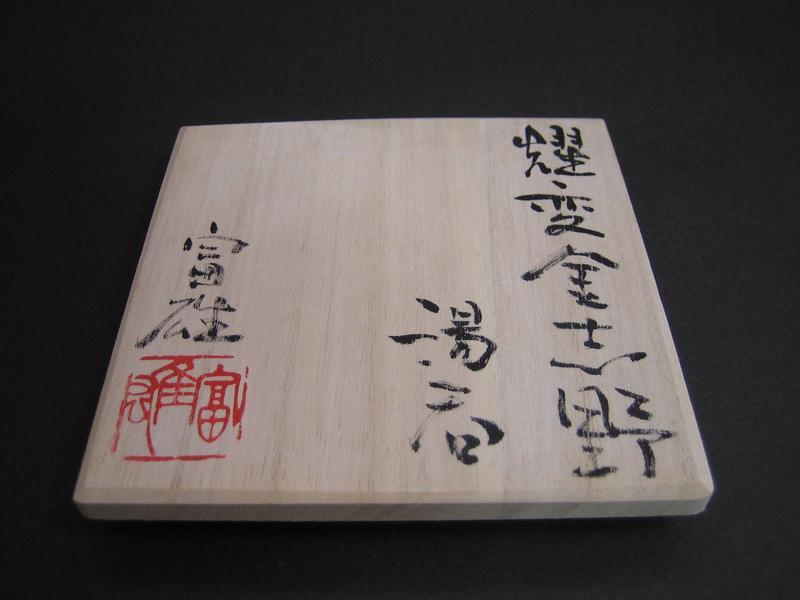 耀変金志野
湯呑
富雄
富雄